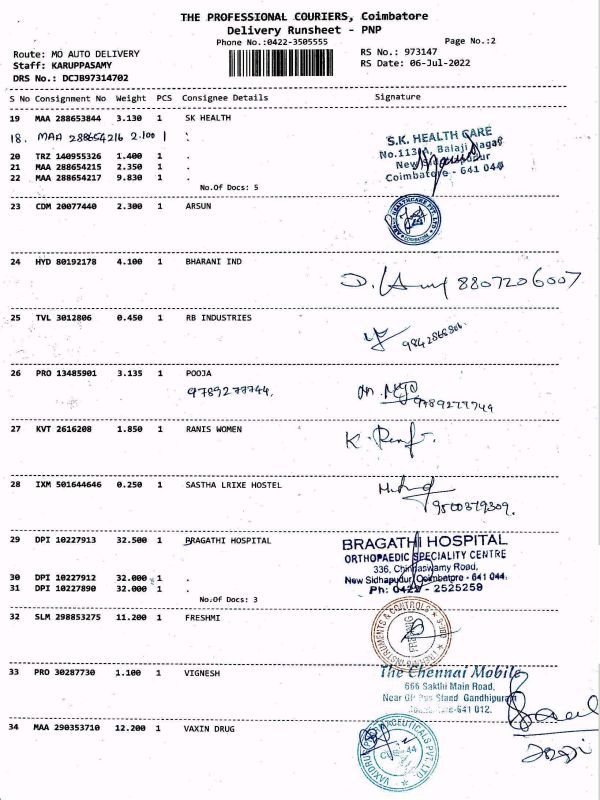 THE PROFESSIONAL COURIERS, Coimbatore
Delivery Runsheet - PNP
Phone No.:0422-3505555 Page No.:2
Route: MO AUTO DELIVERY RS No.: 973147
Staff: KARUPPASAMY RS Date: 06-Jul-2022
DRS No.: DCJB97314702
S No Consignment No Weight PCS Consignee Details Signature
19 MAA 288653844 3.130 1 SK HEALTH
18. MAA 288654216 2.100 1
S.K. HEALTH CARE
No.113/A, Balaji Nagar
Coimbatore - 641 044
20 TRZ 140955326 1.400 1 .
21 MAA 288654215 2.350 1 .
22 MAA 288654217 9.830 1 .
No.Of Docs: 5
23 CDM 20077440 2.300 1 ARSUN
24 HYD 80192178 4.100 1 BHARANI IND
8807206007
25 TVL 3012806 0.450 1 RB INDUSTRIES
26 PRO 13485901 3.135 1 POOJA
9789277744.
9789277744
27 KVT 2616208 1.850 1 RANIS WOMEN
28 IXM 501644646 0.250 1 SASTHA LRIXE HOSTEL
9500379309.
29 DPI 10227913 32.500 1 BRAGATHI HOSPITAL
BRAGATHI HOSPITAL
ORTHOPAEDIC SPECIALITY CENTRE
336, Chinnaswamy Road,
New Sidhapudur, Coimbatore - 641 044.
Ph: 0422 - 2525259
30 DPI 10227912 32.000 1 .
31 DPI 10227890 32.000 1 .
No.Of Docs: 3
32 SLM 298853275 11.200 1 FRESHMI
33 PRO 30287730 1.100 1 VIGNESH
The Chennai Mobile
666 Sakthi Main Road,
Near GP Bus Stand Gandhipuram
641 012.
34 MAA 290353710 12.200 1 VAXIN DRUG